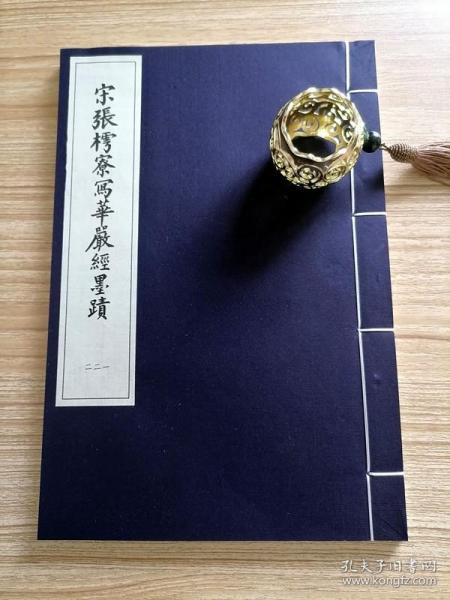 宋張樗寮寫華嚴經墨蹟
二二一
孔夫子旧书网
www.kongfz.com